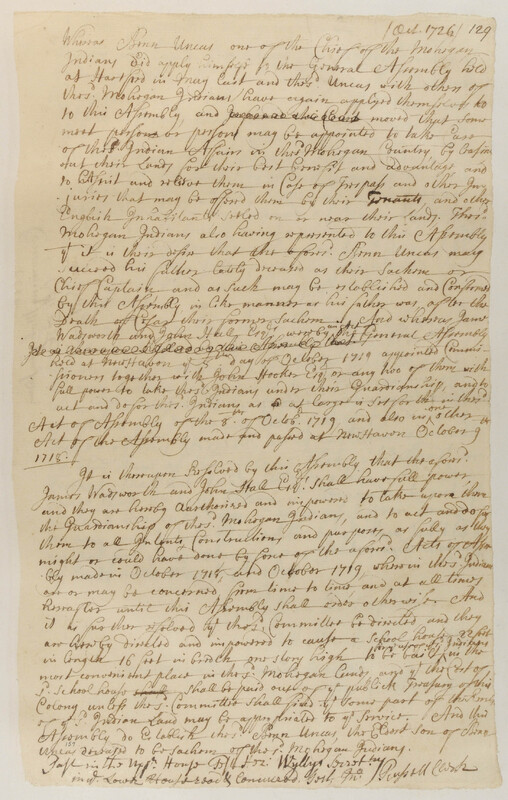 (Oct. 1726) 129
Whereas Benn Uncas one of the Chiefs of the Mohegan
Indians did apply himself to the General Assembly held
at Hartford in may Last and the sd Uncas with others of
the sd Mohegan Indians have again applyed themselves
to this Assembly and moved that some
meet person or persons may be appointed to take care
of the sd Indian Affairs in the sd Mohegan Country by Leasing
out their Lands for their best benefit and advantage and
to Assist and relieve them in Case of Trespass and other Inj
juries that may be offerd them by their Tenants and other
English Inhabitants setled on or near their lands. The sd
Mohegan Indians also having represented to this Assembly
yt it is their desire that the aforesd Benn Uncas may
succeed his father lately deceased as their Sachem or
Chief Captain and as such may be established and Confirmed
by this Assembly in like manner as his father was after the
Death of Cesar their former Sachem. And whereas James
Wadsworth and John Hall Esqrs were by the General Assembly
held at New Haven of day of October 1719 appointed Commi
ssioners together with John Hooker Esq or any two of them with
full power to take the sd Indians under their Guardianship, and to
act and do for the sd Indians as is at large is set forth in the sd
Act of Assembly of the 8th of Octobr 1719 and also in one other
Act of the Assembly made and passed at New Haven October 9th
1718.
It is thereupon Resolved by this Assembly that the aforesd
James Wadsworth and John Hall Esqrs shall have full power
and they are hereby Authorized and impowered to take upon them
the Guardianship of the sd Mohegan Indians, and to act and do for
them to all Intents Constructions and purposes, as fully as they
might or could have done by force of the aforesd Acts of Assem
bly made in October 1718, and October 1719, wherein the sd Indians
are or may be concerned from time to time and at all times
hereafter until this Assembly shall order otherwise. And
it is further resolved by that the sd Committee be directed and they
are hereby directed and impowered to cause a School house 22 feet
in length 16 feet in bredth one story high to be built in the
most convenient place in the sd Mohegan Land, and ye Cost of
sd School house shall be paid out of ye publick Treasury of this
Colony unless the Committee shall find yt some part of the
of ye sd Indian Land may be appropriated to yt service. And this
Assembly do Establish the sd Benn Uncas, the Eldest son of Benn
Uncas deceased to be Sachem of the sd Mohegan Indians.
Past in the uppr House Test Hez: Wyllys Secretary
in ye Lower House read & Concurred. Test Jno Russell Clerk